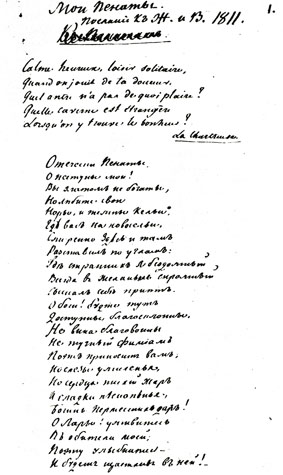 Мои Пенаты. 1.
Посланіе къ Ж. и В. 1811.
Calme heureux, loisir solitaire,
Quand on jouit de ta douceur,
Quel antre n'a pas de quoi plaire?
Quelle caverne est étrangère
Lorsqu'on y trouve le bonheur?
La Chartreuse
Отечески Пенаты,
О пестуны мои!
Вы златомъ не богаты,
Но любите свои
Норы, и темны кельи.
Гдѣ васъ на новосельи,
Смиренно здѣсь и тамъ
Разставилъ по угламъ:
Гдѣ странникъ я бездомный
Всегда въ желаньяхъ скромный
Сыскалъ себѣ приютъ.
О боги! будьте тутъ
Доступны, благосклонны.
Не вина благовонны
Не тучный фиміамъ
Поэтъ приноситъ вамъ,
Но слезы умиленья,
Но сердца тихій жаръ
И сладки пѣснопѣнья,
Богинь Пермесскихъ даръ!
О Лары! уживитесь
Въ обители моей,
Поэту улыбнитесь —
И будетъ щастливъ въ ней!..